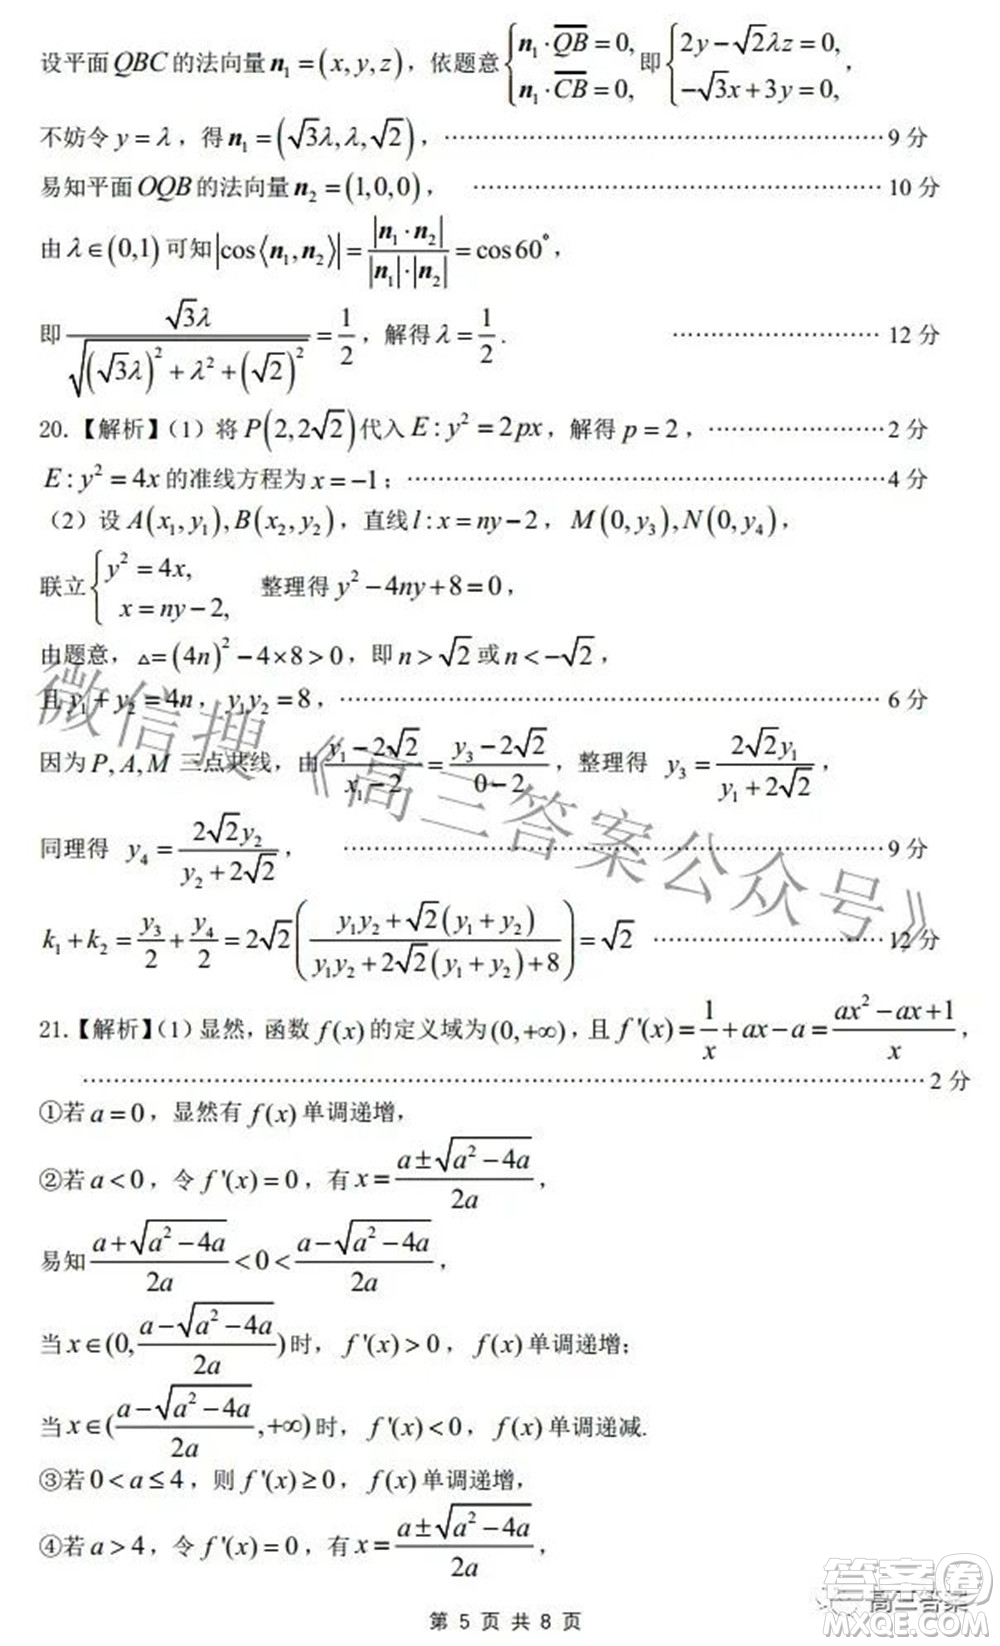 设平面 QBC 的法向量 n₁ = (x, y, z)，依题意 { n₁·QB = 0, n₁·CB = 0, 即 { 2y − √2λz = 0, −√3x + 3y = 0, ，
不妨令 y = λ，得 n₁ = (√3λ, λ, √2)，…………9 分
易知平面 OQB 的法向量 n₂ = (1,0,0)，…………10 分
由 λ∈(0,1) 可知 |cos⟨n₁, n₂⟩| = |n₁·n₂| / (|n₁|·|n₂|) = cos60°，
即 √3λ / √((√3λ)² + λ² + (√2)²) = 1/2，解得 λ = 1/2. …………12 分
20.【解析】（1）将 P(2, 2√2) 代入 E : y² = 2px，解得 p = 2，…………2 分
E : y² = 4x 的准线方程为 x = −1；…………4 分
（2）设 A(x₁, y₁), B(x₂, y₂)，直线 l : x = ny − 2，M(0, y₃), N(0, y₄)，
联立 { y² = 4x, x = ny − 2, 整理得 y² − 4ny + 8 = 0，
由题意，△ = (4n)² − 4×8 > 0，即 n > √2 或 n < −√2，
且 y₁ + y₂ = 4n，y₁y₂ = 8，…………6 分
因为 P, A, M 三点共线，由 (y₁ − 2√2)/(x₁ − 2) = (y₃ − 2√2)/(0 − 2)，整理得 y₃ = 2√2y₁/(y₁ + 2√2)，
同理得 y₄ = 2√2y₂/(y₂ + 2√2)，…………9 分
k₁ + k₂ = y₃/2 + y₄/2 = 2√2( (y₁y₂ + √2(y₁ + y₂)) / (y₁y₂ + 2√2(y₁ + y₂) + 8) ) = √2 …………12 分
21.【解析】（1）显然，函数 f(x) 的定义域为 (0, +∞)，且 f'(x) = 1/x + ax − a = (ax² − ax + 1)/x，
…………2 分
①若 a = 0，显然有 f(x) 单调递增，
②若 a < 0，令 f'(x) = 0，有 x = (a ± √(a² − 4a))/2a，
易知 (a + √(a² − 4a))/2a < 0 < (a − √(a² − 4a))/2a，
当 x∈(0, (a − √(a² − 4a))/2a) 时，f'(x) > 0，f(x) 单调递增；
当 x∈((a − √(a² − 4a))/2a, +∞) 时，f'(x) < 0，f(x) 单调递减.
③若 0 < a ≤ 4，则 f'(x) ≥ 0，f(x) 单调递增，
④若 a > 4，令 f'(x) = 0，有 x = (a ± √(a² − 4a))/2a，
第 5 页 共 8 页
微信搜《高三答案公众号》
答案圈
高三答案